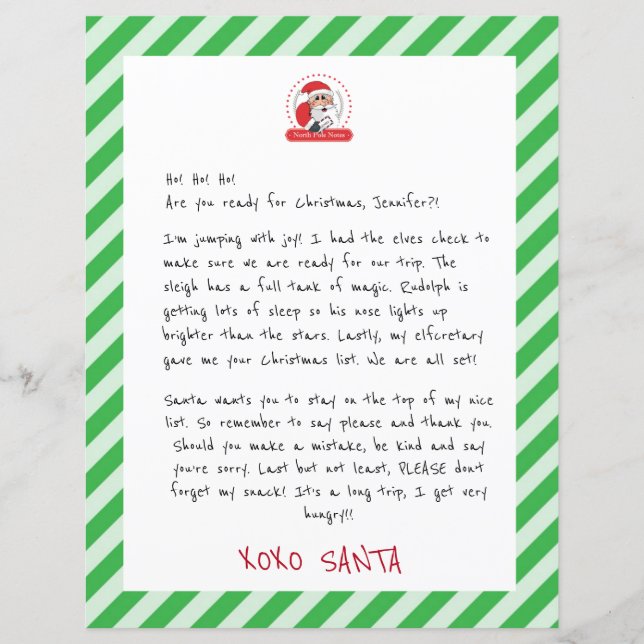 North Pole Notes
Ho! Ho! Ho!
Are you ready for Christmas, Jennifer?!
I'm jumping with joy! I had the elves check to
make sure we are ready for our trip. The
sleigh has a full tank of magic. Rudolph is
getting lots of sleep so his nose lights up
brighter than the stars. Lastly, my elfcretary
gave me your Christmas list. We are all set!
Santa wants you to stay on the top of my nice
list. So remember to say please and thank you.
Should you make a mistake, be kind and say
you're sorry. Last but not least, PLEASE don't
forget my snack! It's a long trip, I get very
hungry!!
XOXO SANTA